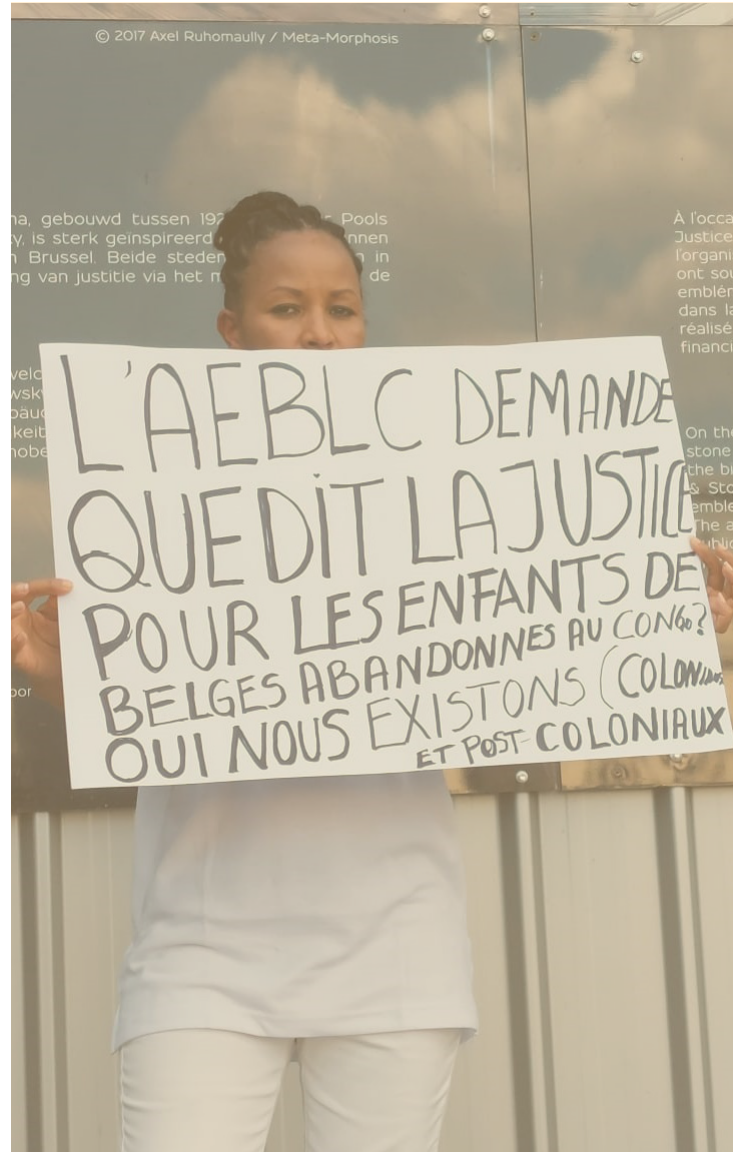 © 2017 Axel Ruhomaully / Meta-Morphosis
gebouwd tussen
Pools
is sterk geïnspireerd
Brussel. Beide steden
in
van justitie via het
de
À l'occa
Justice
l'organi
ont sou
emblém
dans la
réalisé
financi
On the
stone
the b
& Sto
emble
The a
ublic
L'AEBLC DEMANDE
QUE DIT LA JUSTICE
POUR LES ENFANTS DE
BELGES ABANDONNES AU CONGO?
OUI NOUS EXISTONS (COLONIAUX
ET POST-COLONIAUX